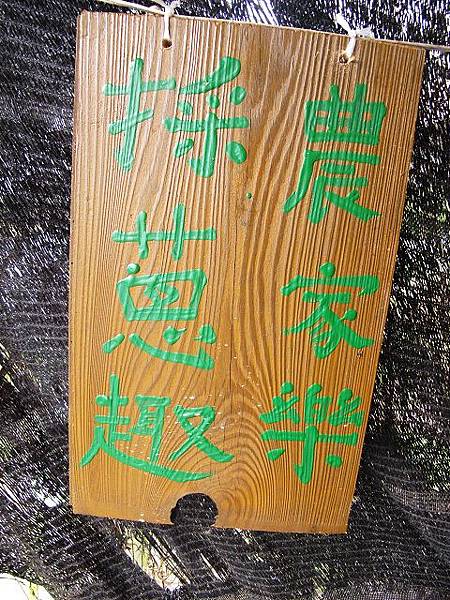 農家樂
採蔥趣